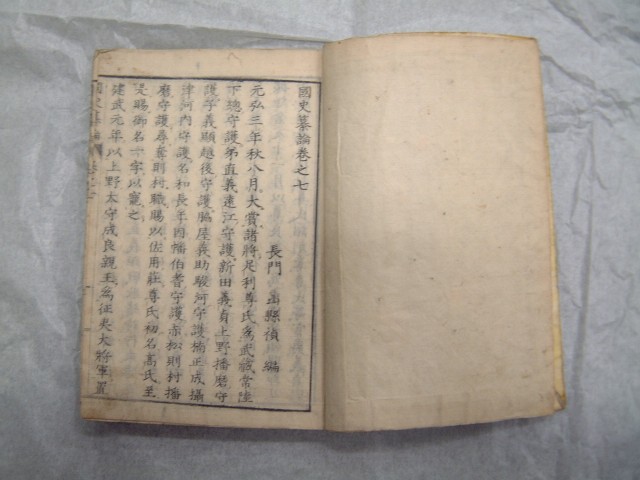 國史纂論卷之七
長門 山縣禎 編
元弘三年秋八月大賞諸將足利尊氏為武藏常陸
下總守護弟直義遠江守護新田義貞上野播磨守
護子義顯越後守護脇屋義助駿河守護楠正成攝
津河內守護名和長年因幡伯耆守護赤松則村播
磨守護尋奪則村職賜以佐用莊尊氏初名高氏至
是賜御名一字以寵之
建武元年以上野太守成良親王為征夷大將軍置
國史纂論